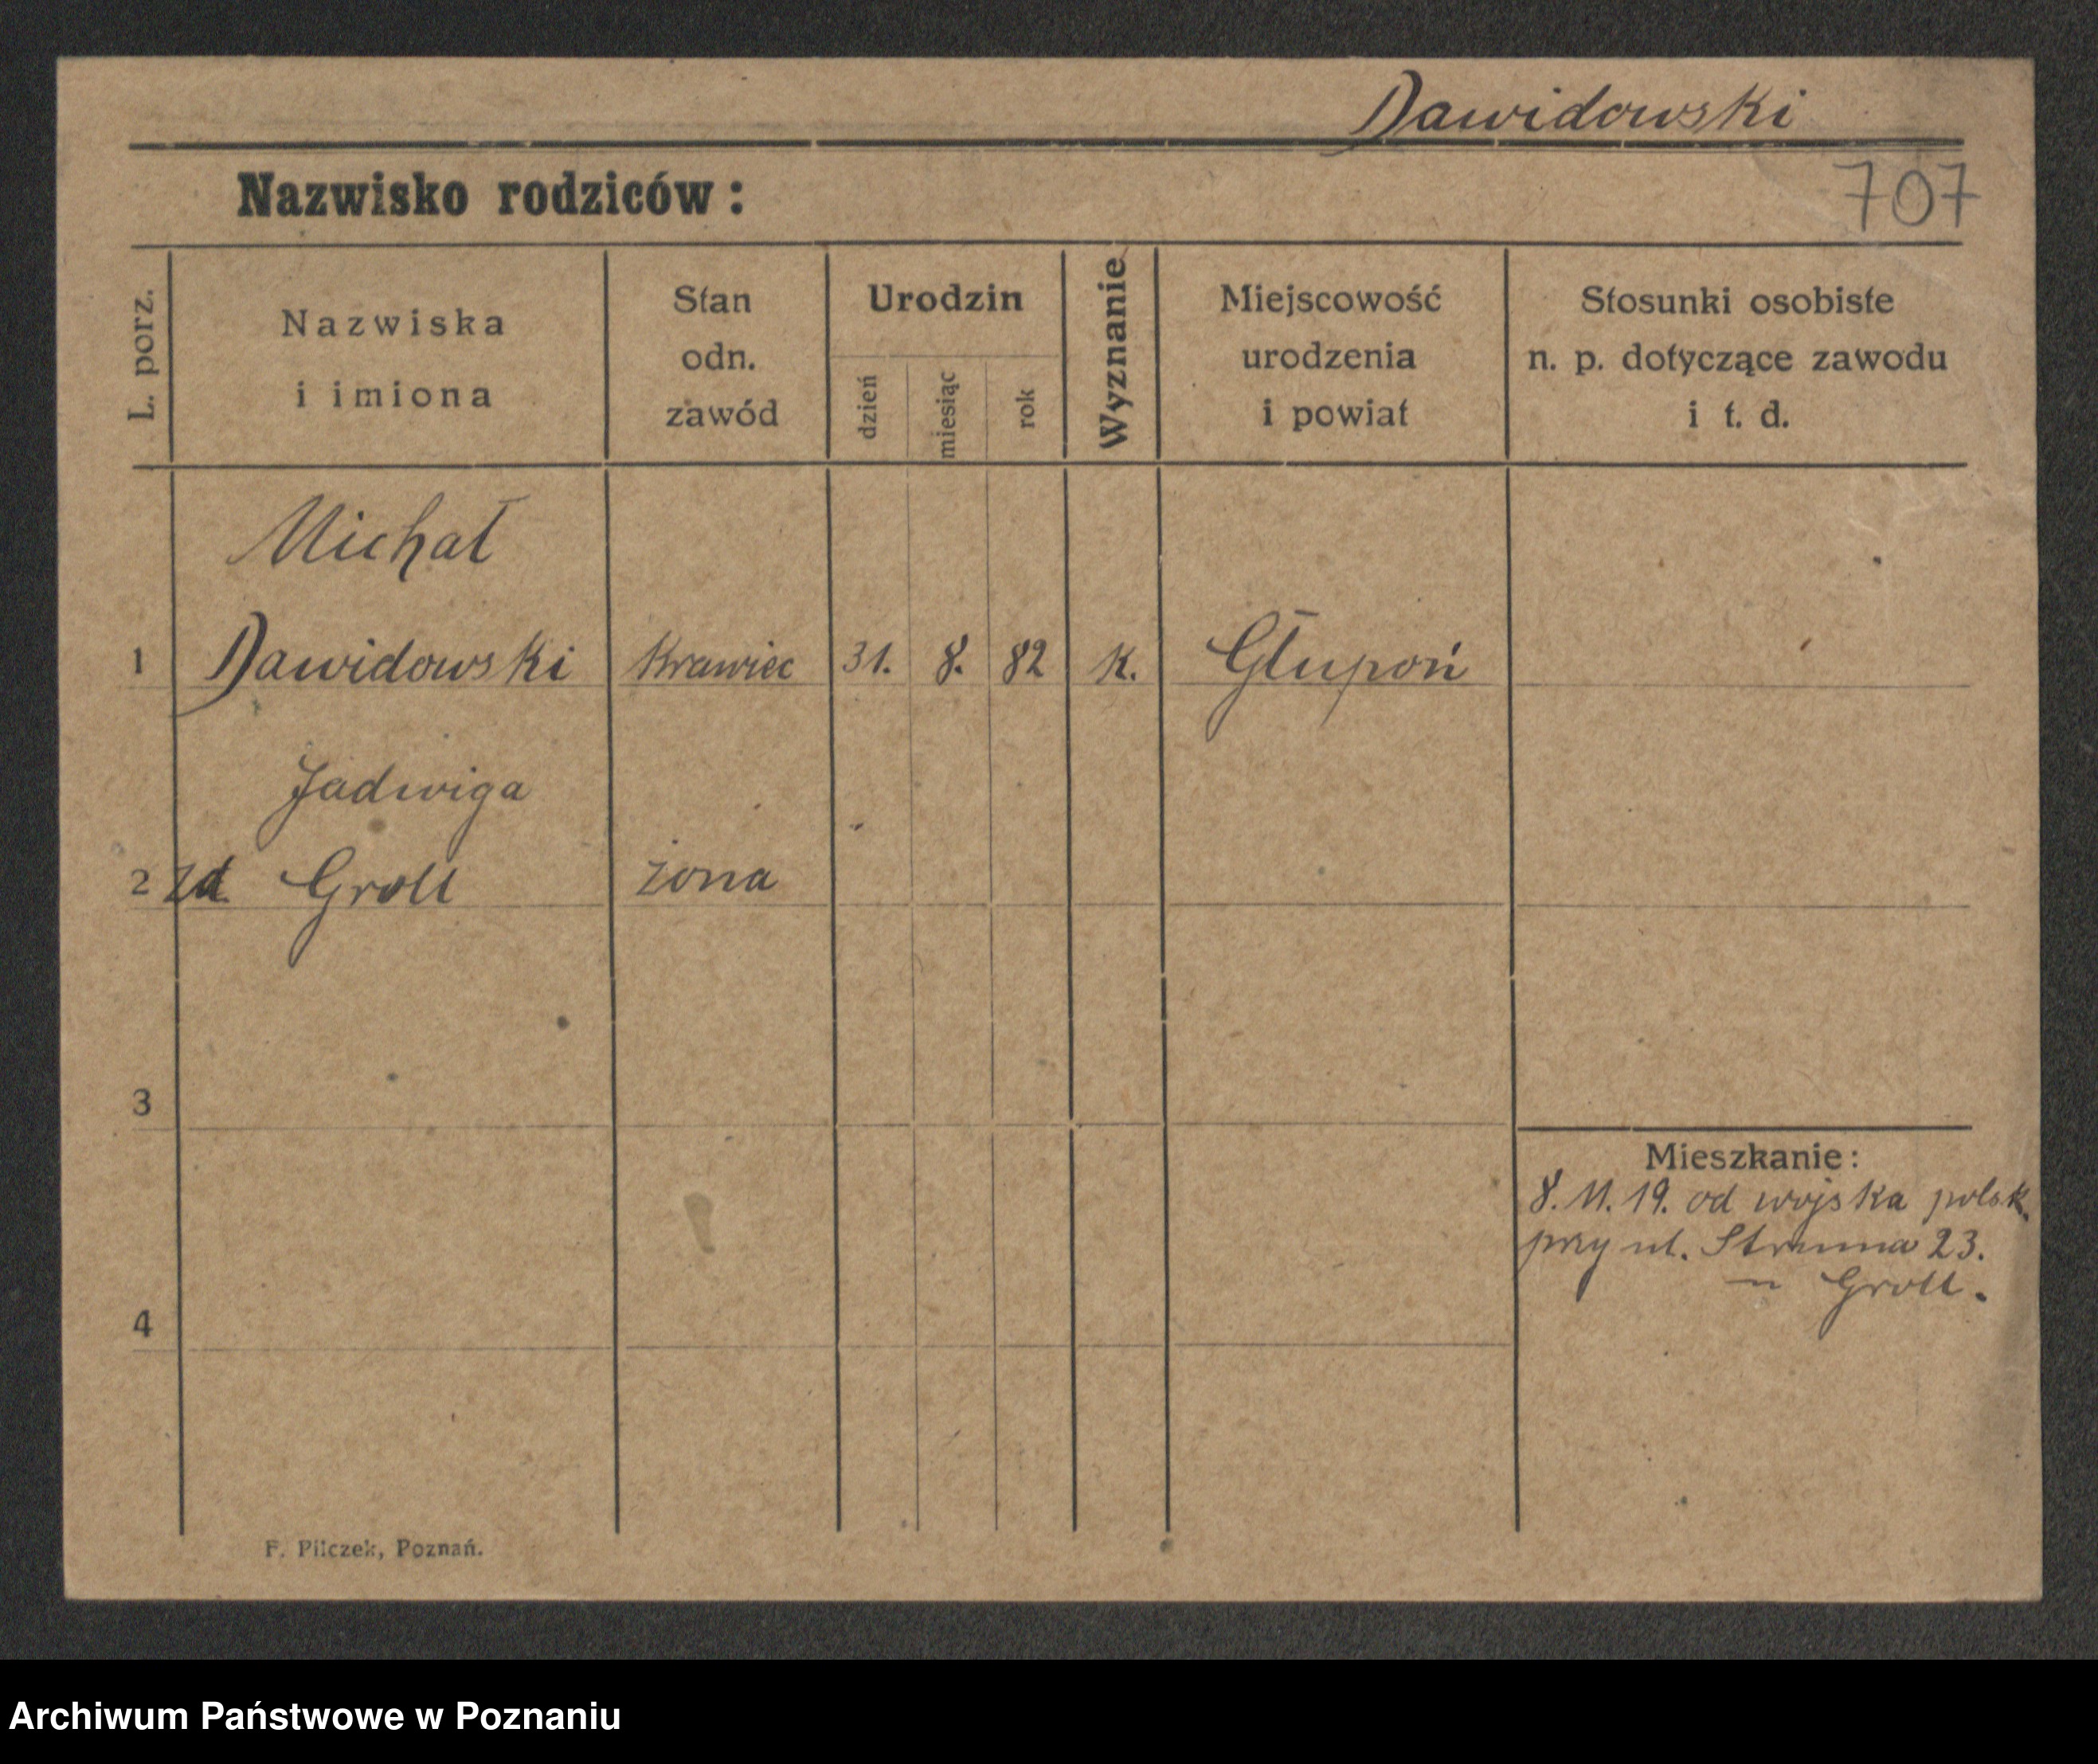 Dawidowski
707
Nazwisko rodziców:
L. porz.
Nazwiska
i imiona
Stan
odn.
zawód
Urodzin
dzień
miesiąc
rok
Wyznanie
Miejscowość
urodzenia
i powiat
Stosunki osobiste
n. p. dotyczące zawodu
i t. d.
Michał
1 Dawidowski Krawiec 31. 8. 82 K. Głupoń
Jadwiga
2 zd. Groll żona
3
Mieszkanie:
8. 11. 19. od wojska polsk.
przy ul. Strumna 23.
u Groll.
4
F. Pilczek, Poznań.
Archiwum Państwowe w Poznaniu